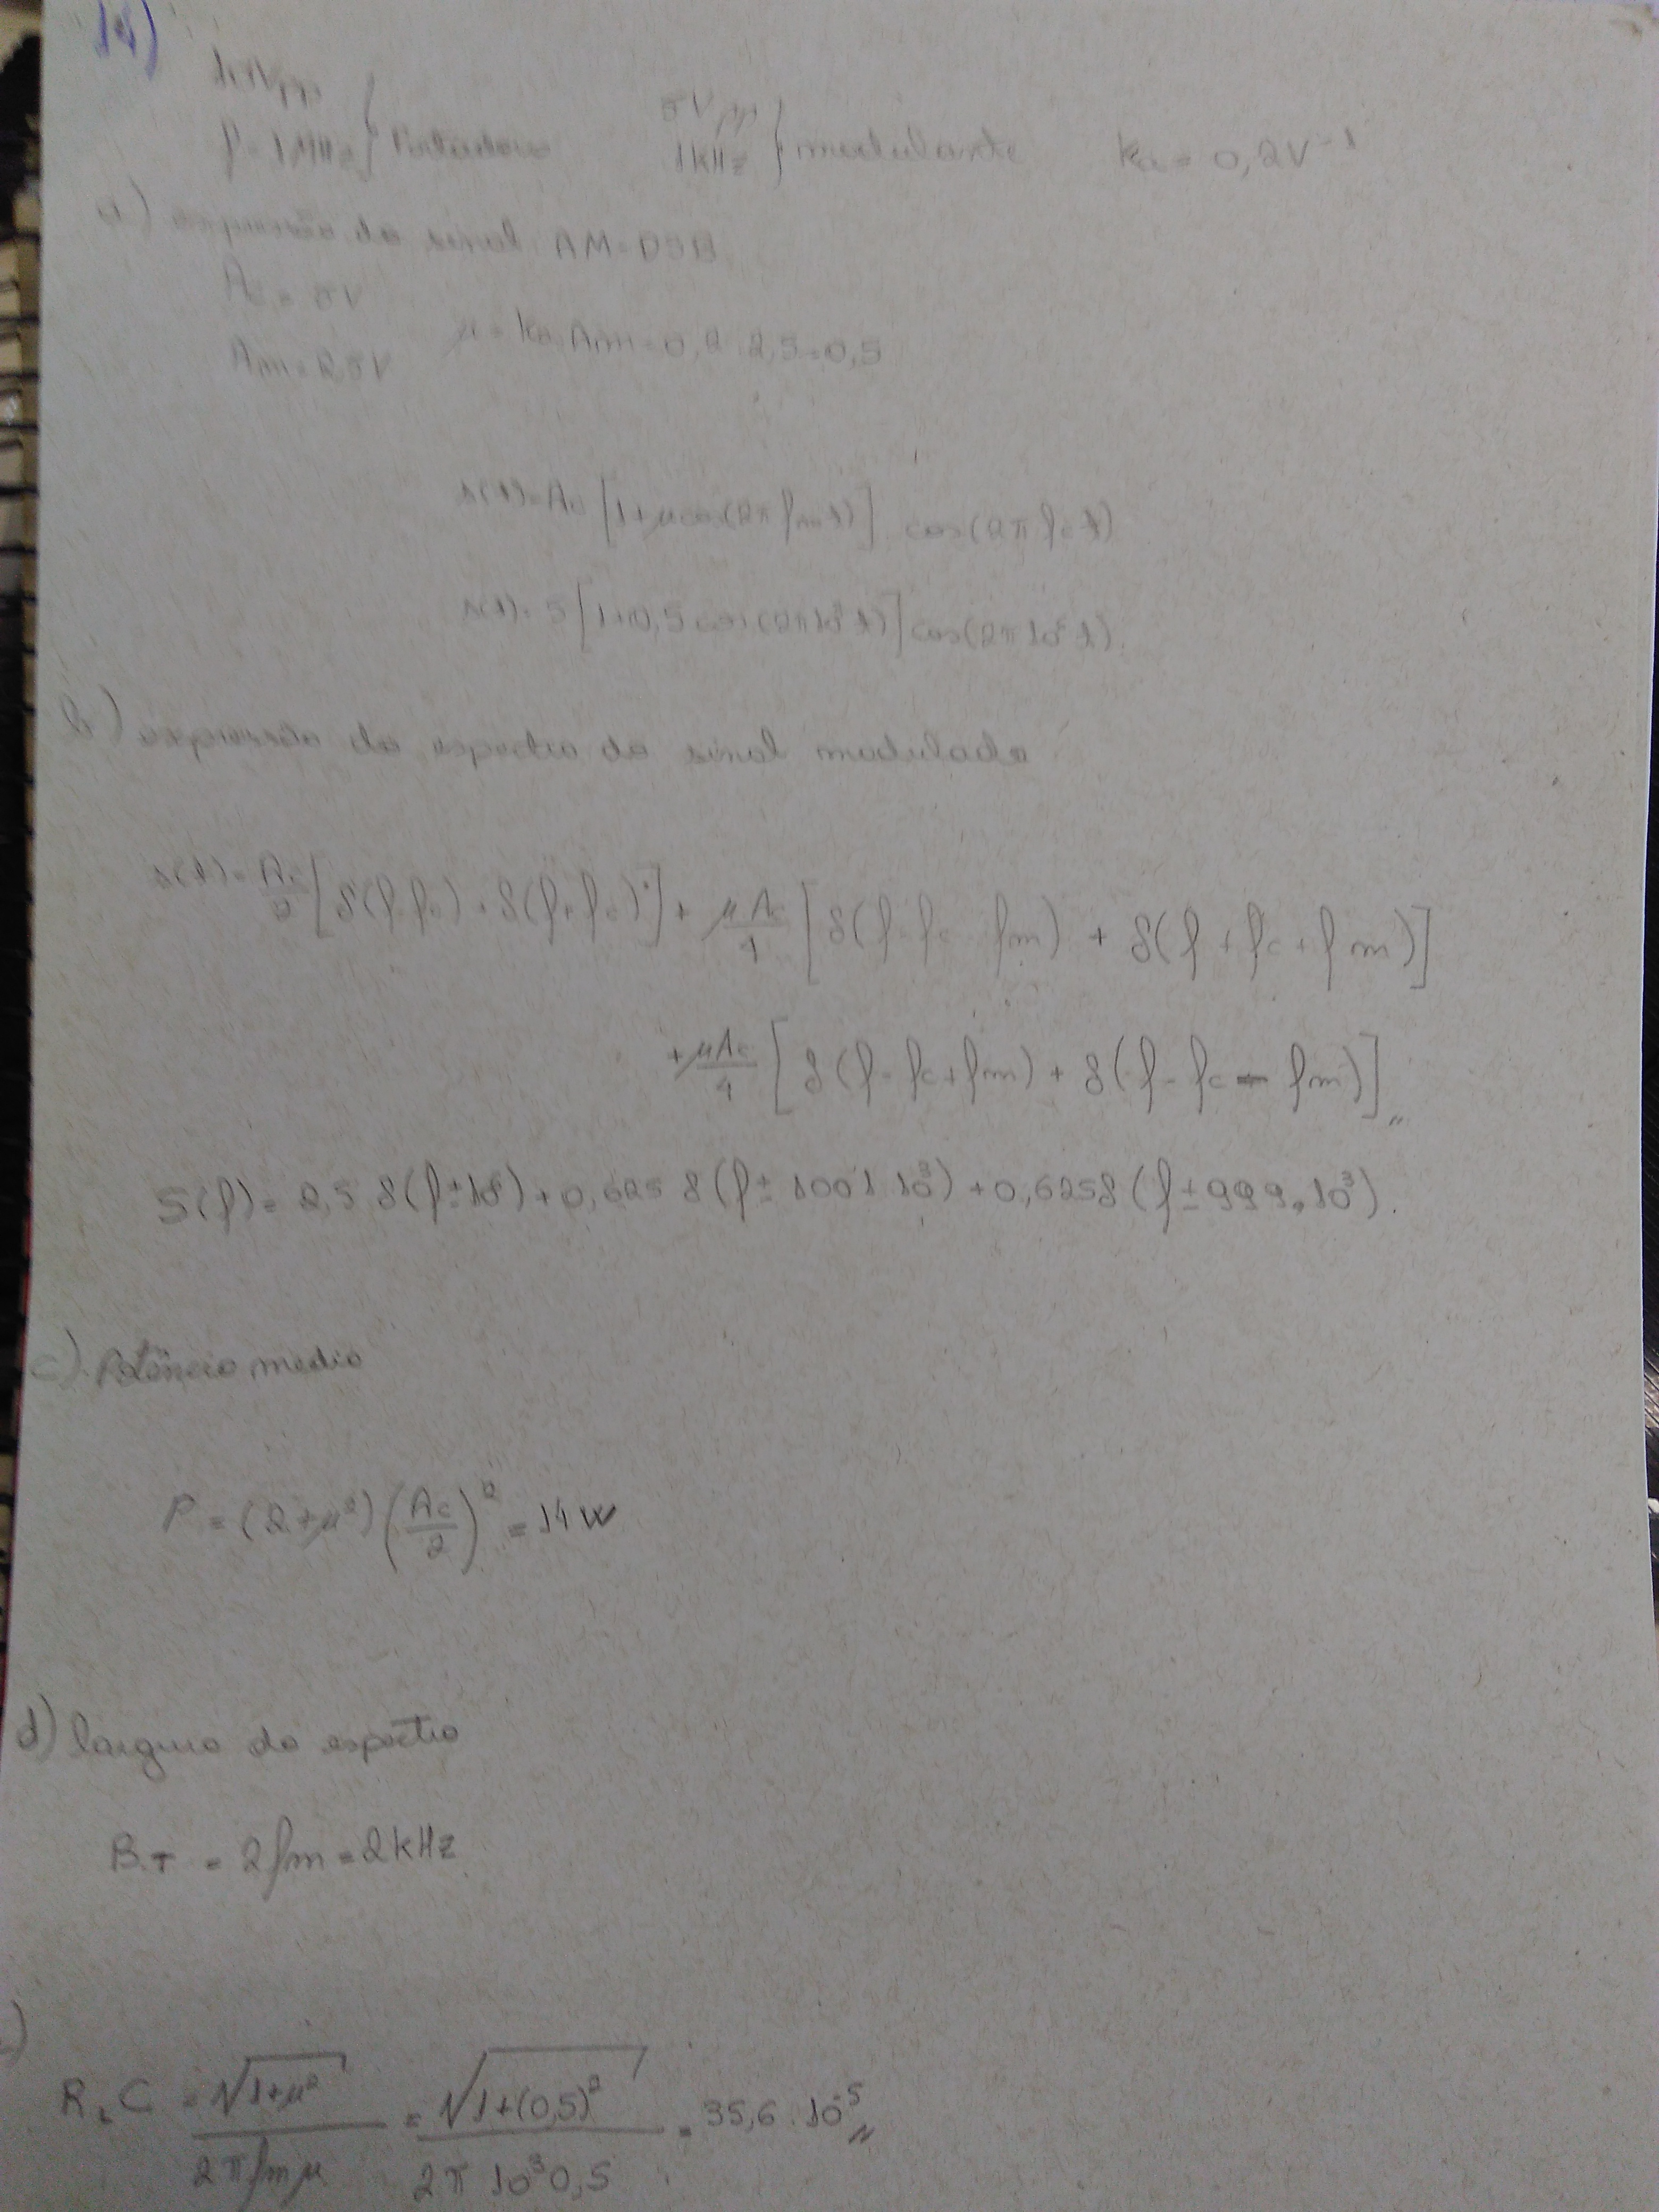 14)
10Vpp
f=1MHz } Portadora 5Vpp 1kHz } modulante ka = 0,2V⁻¹
a) expressão do sinal AM-DSB
Ac = 5V
Am = 2,5V μ = ka.Am = 0,2 . 2,5 = 0,5
s(t) = Ac [1+μcos(2π fm t)] cos(2π fc t)
s(t) = 5 [1+0,5 cos(2π10³ t)] cos(2π 10⁶ t).
b) expressão do espectro do sinal modulado
s(f) = Ac/2 [δ(f-fc) + δ(f+fc)] + μAc/4 [δ(f-fc-fm) + δ(f+fc+fm)]
+ μAc/4 [δ(f-fc+fm) + δ(f-fc-fm)]„
S(f) = 2,5 δ(f±10⁶) + 0,625 δ(f± 1001.10³) + 0,625δ(f±999.10³).
c) Potência media
P = (2+μ²) (Ac/2)² = 14W
d) largura do espectro
BT = 2fm = 2kHz
R.C = √(1+μ²) / 2πfmμ = √(1+(0,5)²) / 2π 10³ 0,5 = 35,6 . 10⁻⁵„